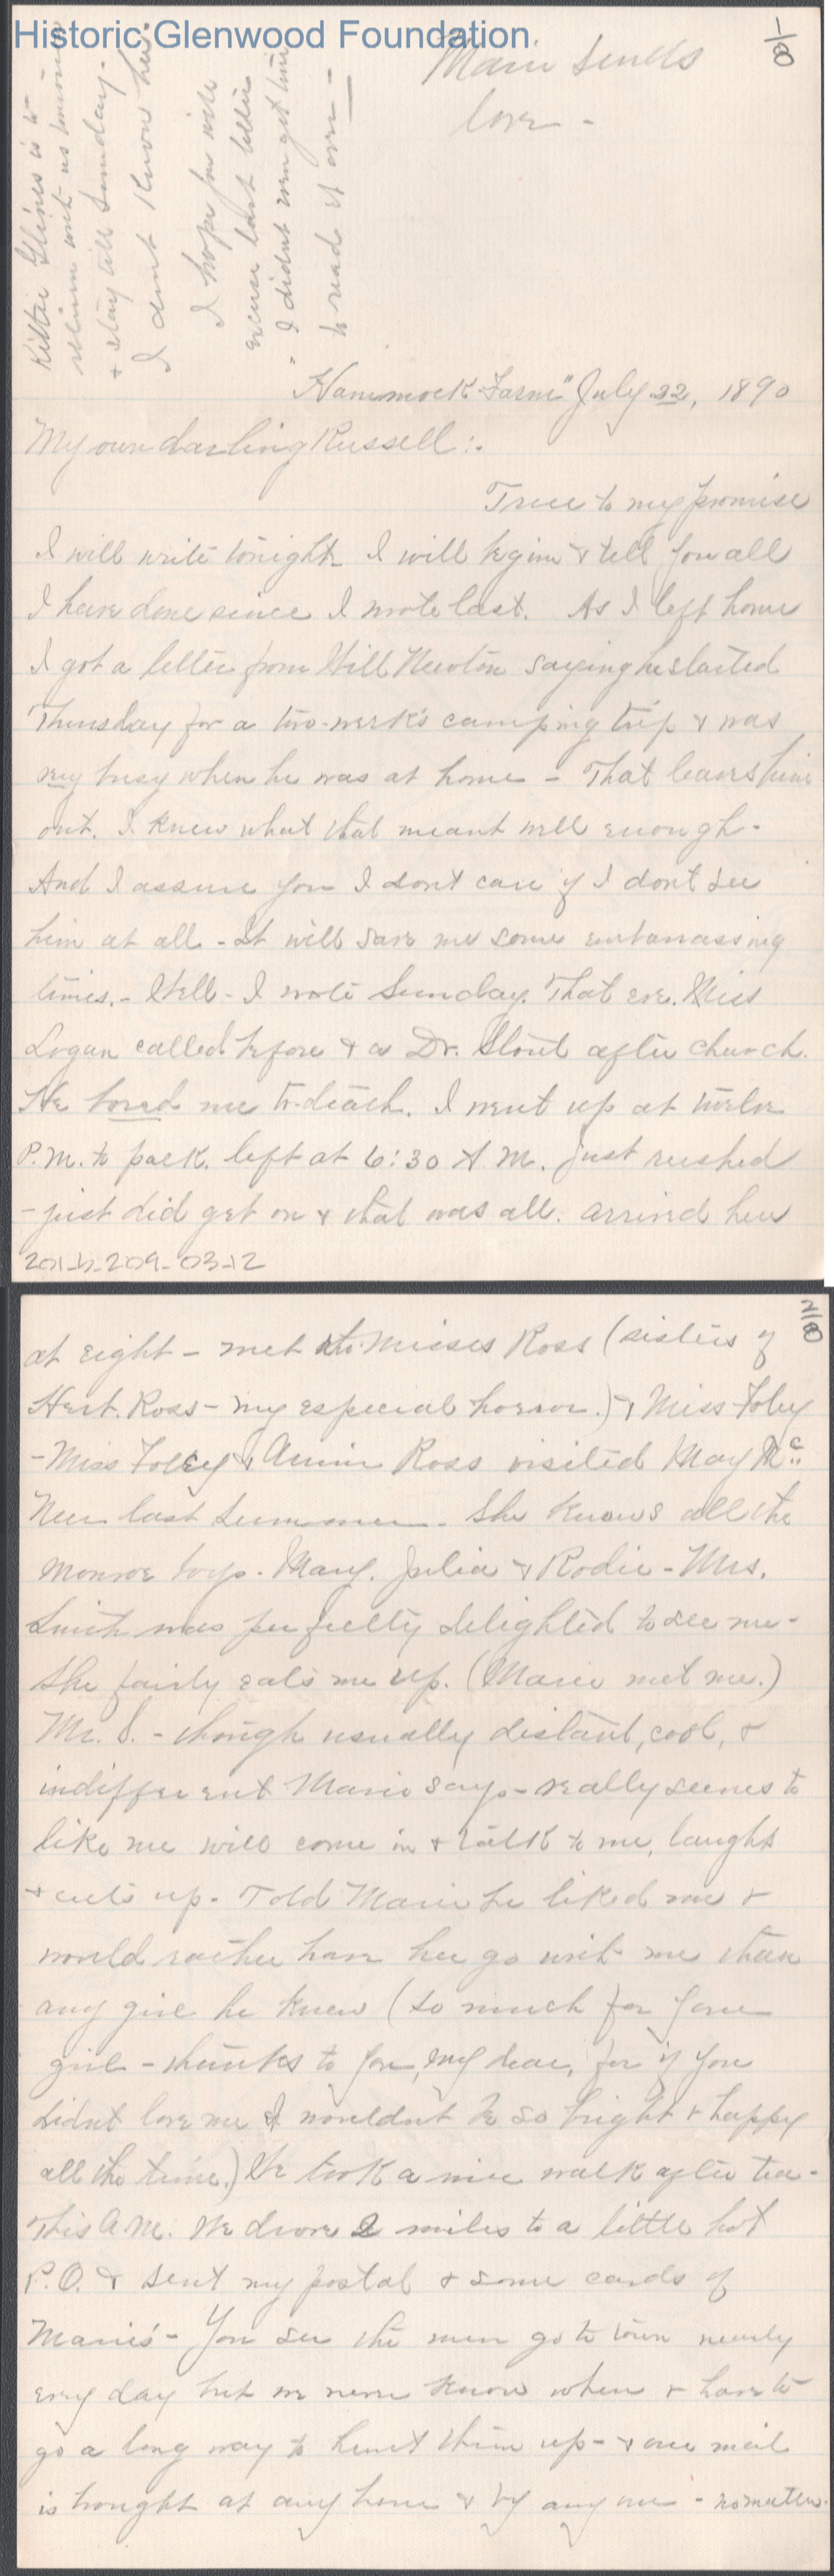 Historic Glenwood Foundation
1/8
Marie sends
love -
Kittie Glines is to
return with us tomorrow
+ stay till Sunday -
I dont know her.
I hope you will
excuse last letter
I didnt even get time
to read it over -
"Hammock Farm" July 22, 1890
My own darling Russell:.
True to my promise
I will write tonight I will begin & tell you all
I have done since I wrote last. As I left home
I got a letter from Will Newton saying he started
Thursday for a two-week's camping trip & was
very busy when he was at home - That leaves him
out. I knew what that meant well enough.
And I assure you I dont care if I dont see
him at all - It will save me some embarrassing
times. - Well - I wrote Sunday. That eve. Miss
Logan called before & a Dr. Stout after church.
He bored me to death. I went up at twelve
P.M. to pack. left at 6:30 A M. just rushed
- just did get on & that was all. arrived here
2014-209-03-12
2/8
at eight - met the Misses Ross (sisters of
Herb. Ross - my especial horror.) & Miss Foley
- Miss Foley & Annie Ross visited May Mc
New last summer. She knows all the
Monroe boys. Mary, Julia & Rodie - Mrs.
Smith was perfectly delighted to see me -
She fairly eats me up. (Marie met me.)
Mr. S. - though usually distant, cool, &
indifferent Marie says - really seems to
like me will come in & talk to me, laughs
& cuts up. Told Marie he liked me &
would rather have her go with me than
any girl he knew (so much for your
girl - thanks to you, my dear, for if you
didnt love me I wouldnt be so bright & happy
all the time.) We took a nice walk after tea.
This A.M. We drove 2 miles to a little hot
P.O. & sent my postal & some cards of
Marie's - You see the men go to town nearly
every day but we never know when & have to
go a long way to hunt them up - & our mail
is brought at any hour & by any one - no matter.